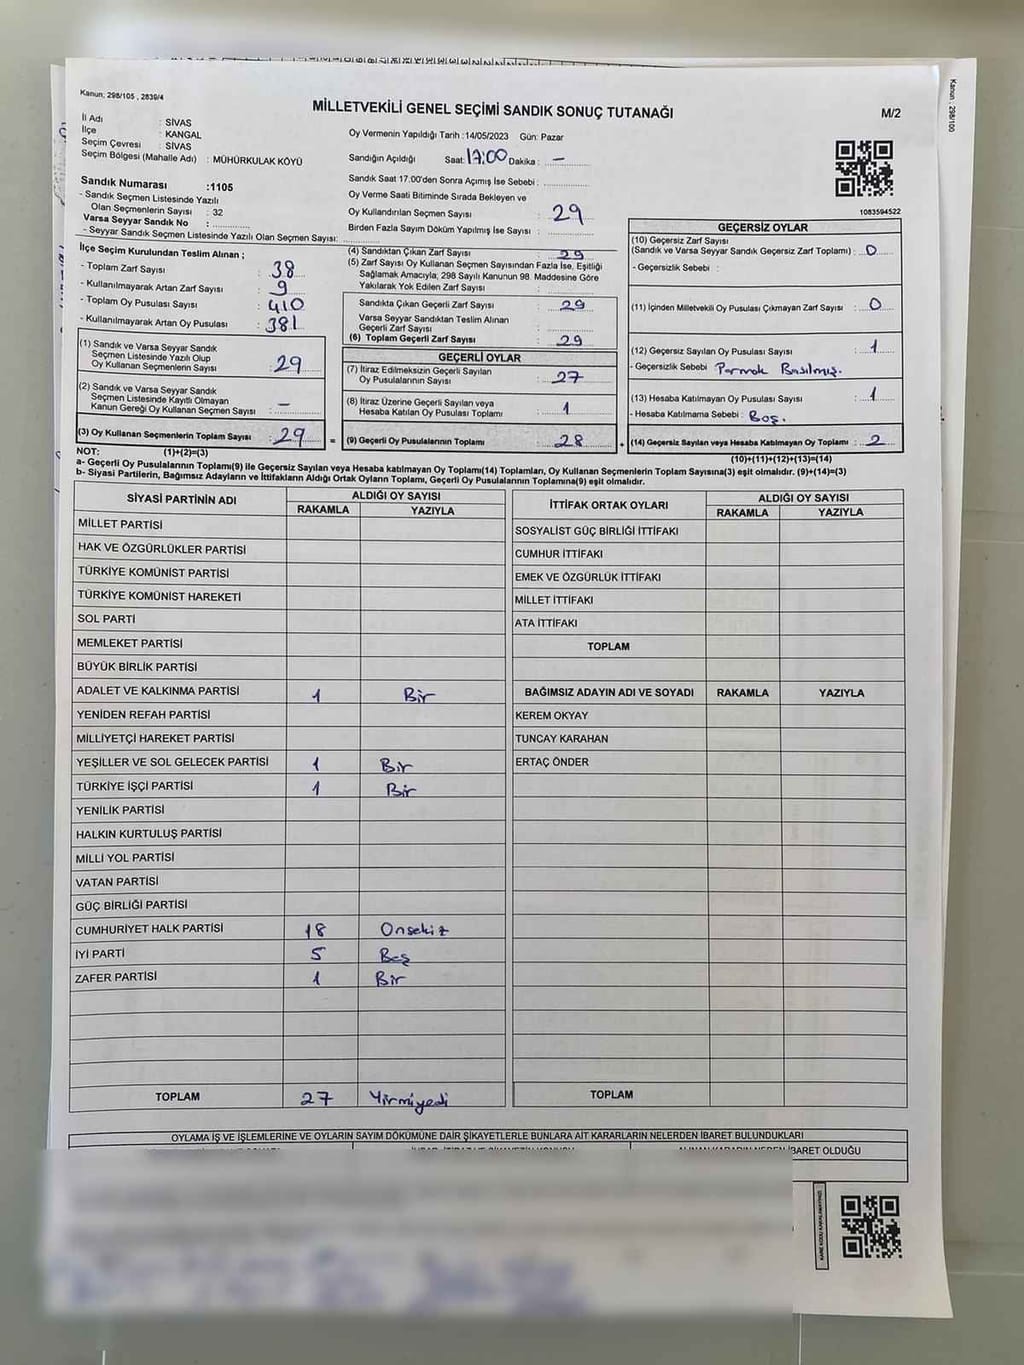 Kanun: 298/105 , 2839/4
Kanun : 298/100
MİLLETVEKİLİ GENEL SEÇİMİ SANDIK SONUÇ TUTANAĞI
M/2
İl Adı : SİVAS
İlçe : KANGAL
Seçim Çevresi : SİVAS
Seçim Bölgesi (Mahalle Adı) : MÜHÜRKULAK KÖYÜ
Oy Vermenin Yapıldığı Tarih :14/05/2023 Gün: Pazar
Sandığın Açıldığı Saat: 17:00 Dakika : –
Sandık Saat 17.00'den Sonra Açımış İse Sebebi :
Oy Verme Saati Bitiminde Sırada Bekleyen ve
Oy Kullandırılan Seçmen Sayısı : 29
Birden Fazla Sayım Döküm Yapılmış İse Sayısı :
1083594522
Sandık Numarası :1105
- Sandık Seçmen Listesinde Yazılı
Olan Seçmenlerin Sayısı : 32
Varsa Seyyar Sandık No :
- Seyyar Sandık Seçmen Listesinde Yazılı Olan Seçmen Sayısı:
İlçe Seçim Kurulundan Teslim Alınan ;
- Toplam Zarf Sayısı : 38
- Kullanılmayarak Artan Zarf Sayısı : 9
- Toplam Oy Pusulası Sayısı : 410
- Kullanılmayarak Artan Oy Pusulası : 381
(1) Sandık ve Varsa Seyyar Sandık
Seçmen Listesinde Yazılı Olup
Oy Kullanan Seçmenlerin Sayısı : 29
(2) Sandık ve Varsa Seyyar Sandık
Seçmen Listesinde Kayıtlı Olmayan
Kanun Gereği Oy Kullanan Seçmen Sayısı : –
(3) Oy Kullanan Seçmenlerin Toplam Sayısı : 29
(1)+(2)=(3)
(4) Sandıktan Çıkan Zarf Sayısı : 29
(5) Zarf Sayısı Oy Kullanan Seçmen Sayısından Fazla İse, Eşitliği
Sağlamak Amacıyla; 298 Sayılı Kanunun 98. Maddesine Göre
Yakılarak Yok Edilen Zarf Sayısı :
Sandıkta Çıkan Geçerli Zarf Sayısı : 29
Varsa Seyyar Sandıktan Teslim Alınan
Geçerli Zarf Sayısı :
(6) Toplam Geçerli Zarf Sayısı : 29
GEÇERLİ OYLAR
(7) İtiraz Edilmeksizin Geçerli Sayılan
Oy Pusulalarının Sayısı : 27
(8) İtiraz Üzerine Geçerli Sayılan veya
Hesaba Katılan Oy Pusulası Toplamı : 1
= (9) Geçerli Oy Pusulalarının Toplamı : 28
GEÇERSİZ OYLAR
(10) Geçersiz Zarf Sayısı
(Sandık ve Varsa Seyyar Sandık Geçersiz Zarf Toplamı) : 0
- Geçersizlik Sebebi :
(11) İçinden Milletvekili Oy Pusulası Çıkmayan Zarf Sayısı : 0
(12) Geçersiz Sayılan Oy Pusulası Sayısı : 1
- Geçersizlik Sebebi : Parmak Basılmış.
(13) Hesaba Katılmayan Oy Pusulası Sayısı : 1
- Hesaba Katılmama Sebebi : Boş.
+ (14) Geçersiz Sayılan veya Hesaba Katılmayan Oy Toplamı : 2
(10)+(11)+(12)+(13)=(14)
NOT:
a- Geçerli Oy Pusulalarının Toplamı(9) ile Geçersiz Sayılan veya Hesaba katılmayan Oy Toplamı(14) Toplamları, Oy Kullanan Seçmenlerin Toplam Sayısına(3) eşit olmalıdır. (9)+(14)=(3)
b- Siyasi Partilerin, Bağımsız Adayların ve İttifakların Aldığı Ortak Oyların Toplamı, Geçerli Oy Pusulalarının Toplamına(9) eşit olmalıdır.
SİYASİ PARTİNİN ADI ALDIĞI OY SAYISI
RAKAMLA YAZIYLA
MİLLET PARTİSİ
HAK VE ÖZGÜRLÜKLER PARTİSİ
TÜRKİYE KOMÜNİST PARTİSİ
TÜRKİYE KOMÜNİST HAREKETİ
SOL PARTİ
MEMLEKET PARTİSİ
BÜYÜK BİRLİK PARTİSİ
ADALET VE KALKINMA PARTİSİ 1 Bir
YENİDEN REFAH PARTİSİ
MİLLİYETÇİ HAREKET PARTİSİ
YEŞİLLER VE SOL GELECEK PARTİSİ 1 Bir
TÜRKİYE İŞÇİ PARTİSİ 1 Bir
YENİLİK PARTİSİ
HALKIN KURTULUŞ PARTİSİ
MİLLİ YOL PARTİSİ
VATAN PARTİSİ
GÜÇ BİRLİĞİ PARTİSİ
CUMHURİYET HALK PARTİSİ 18 Onsekiz
İYİ PARTİ 5 Beş
ZAFER PARTİSİ 1 Bir
TOPLAM 27 Yirmiyedi
İTTİFAK ORTAK OYLARI ALDIĞI OY SAYISI
RAKAMLA YAZIYLA
SOSYALİST GÜÇ BİRLİĞİ İTTİFAKI
CUMHUR İTTİFAKI
EMEK VE ÖZGÜRLÜK İTTİFAKI
MİLLET İTTİFAKI
ATA İTTİFAKI
TOPLAM
BAĞIMSIZ ADAYIN ADI VE SOYADI RAKAMLA YAZIYLA
KEREM OKYAY
TUNCAY KARAHAN
ERTAÇ ÖNDER
TOPLAM
OYLAMA İŞ VE İŞLEMLERİNE VE OYLARIN SAYIM DÖKÜMÜNE DAİR ŞİKAYETLERLE BUNLARA AİT KARARLARIN NELERDEN İBARET BULUNDUKLARI
İBARET OLDUĞU